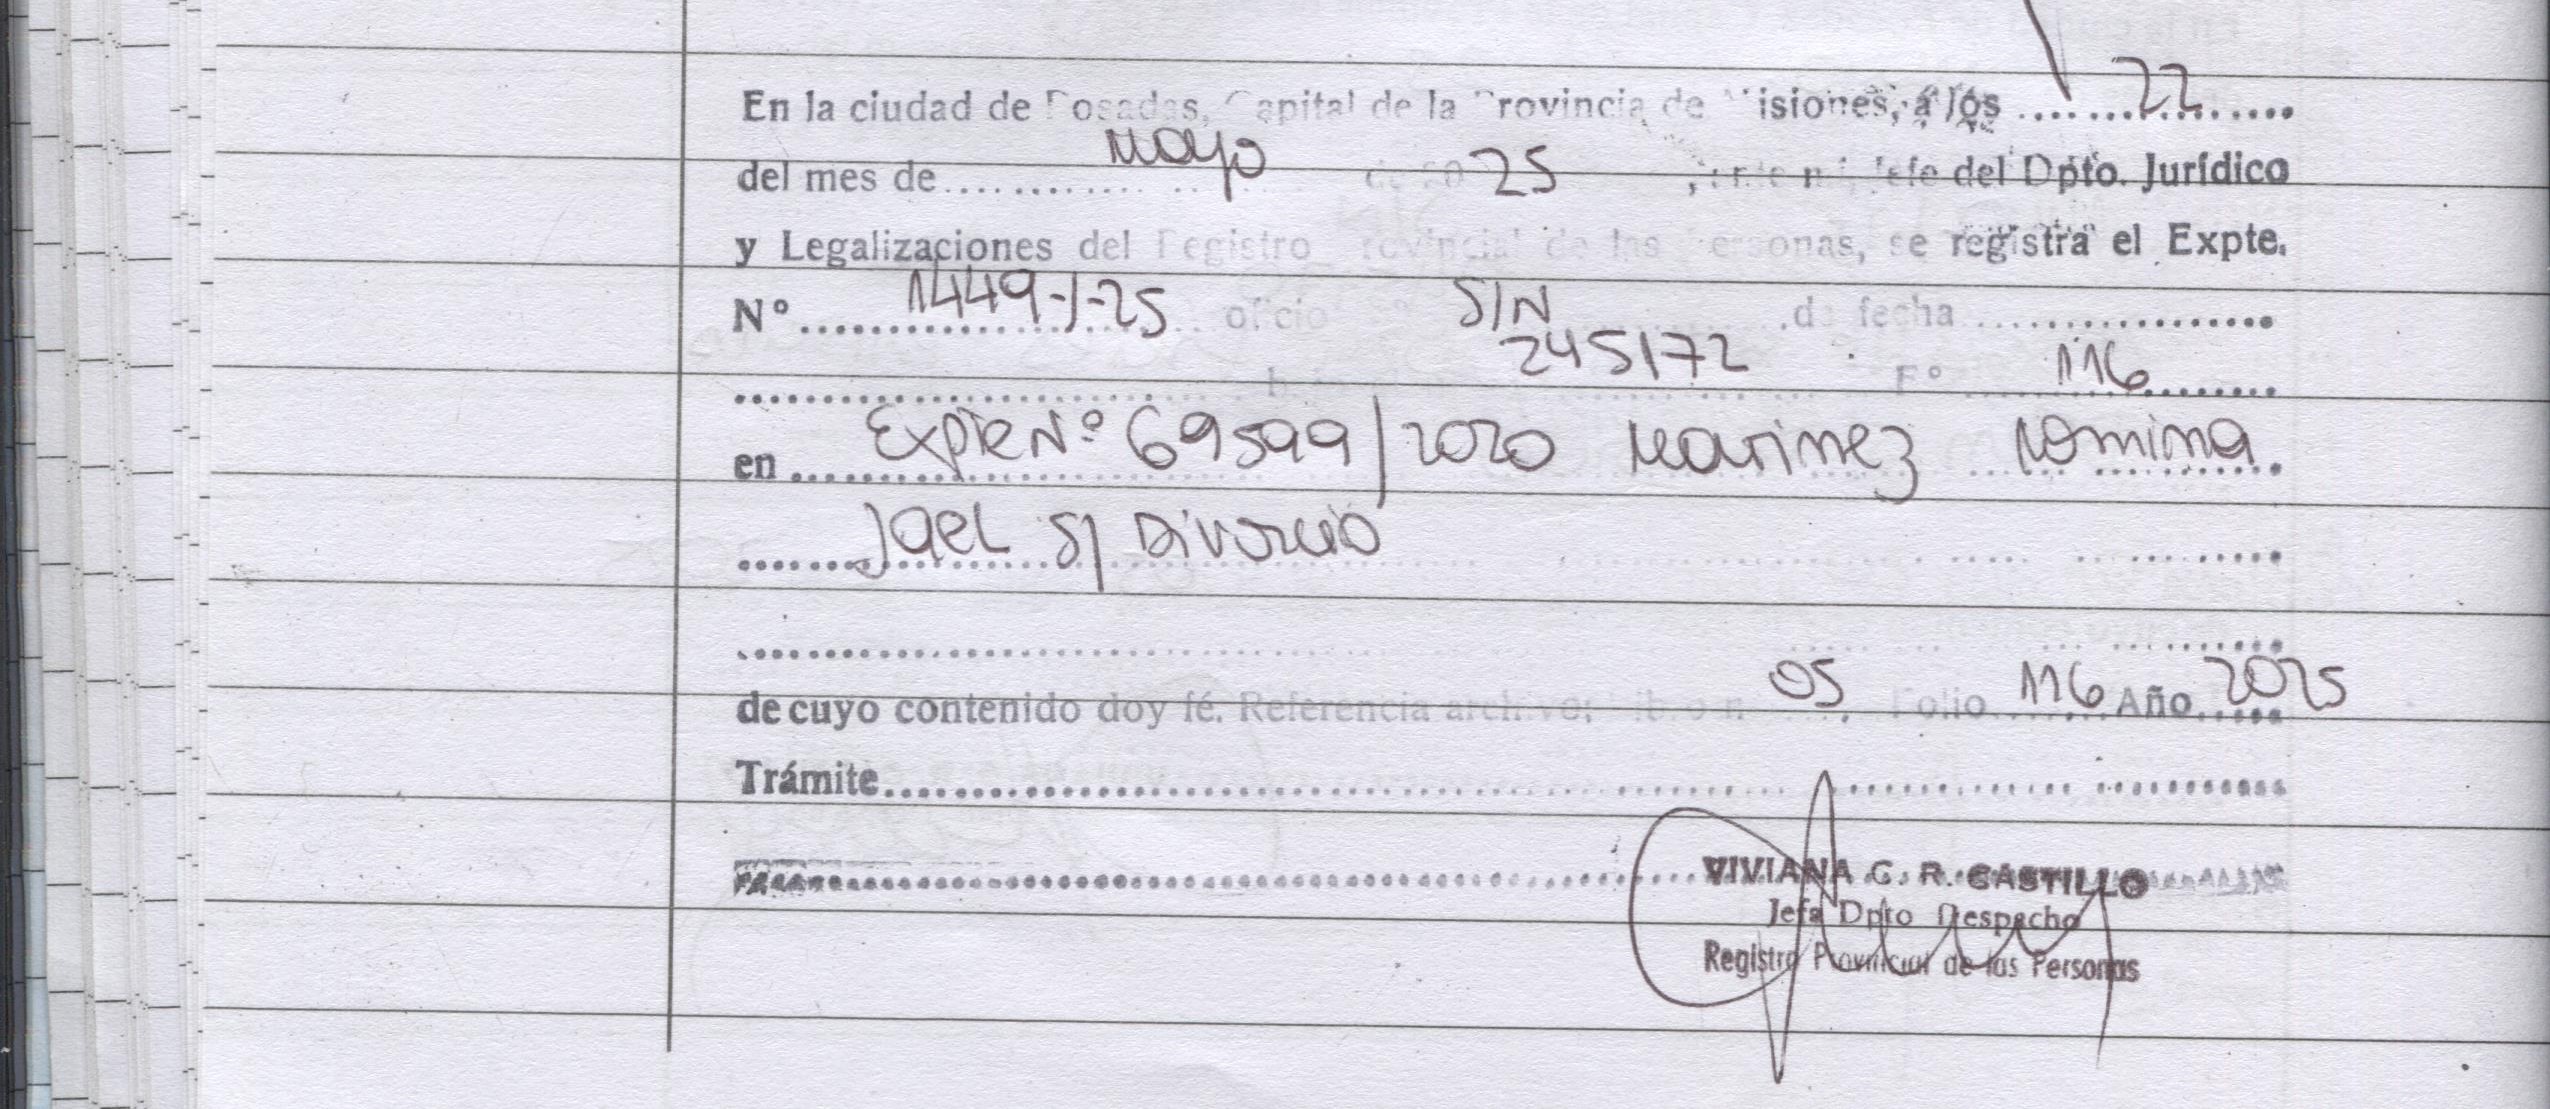 En la ciudad de Posadas, Capital de la Provincia de Misiones, a los ....... 22 .....
del mes de ........ mayo de 20 25, ante mí, Jefe del Dpto. Jurídico
y Legalizaciones del Registro Provincial de las Personas, se registra el Expte.
N° ........ 1449-J-25 oficio S/N de fecha ..................
245172 F° 116 ........
en ........ Expte N° 69599/2020 Marinez Romina
........ Jael S/ Divorcio
de cuyo contenido doy fé. Referencia archivo: libro n 05. Folio 116 Año 2025
Trámite ..................
VIVIANA C. R. CASTILLO
Jefa Dpto Despacho
Registro Provincial de las Personas